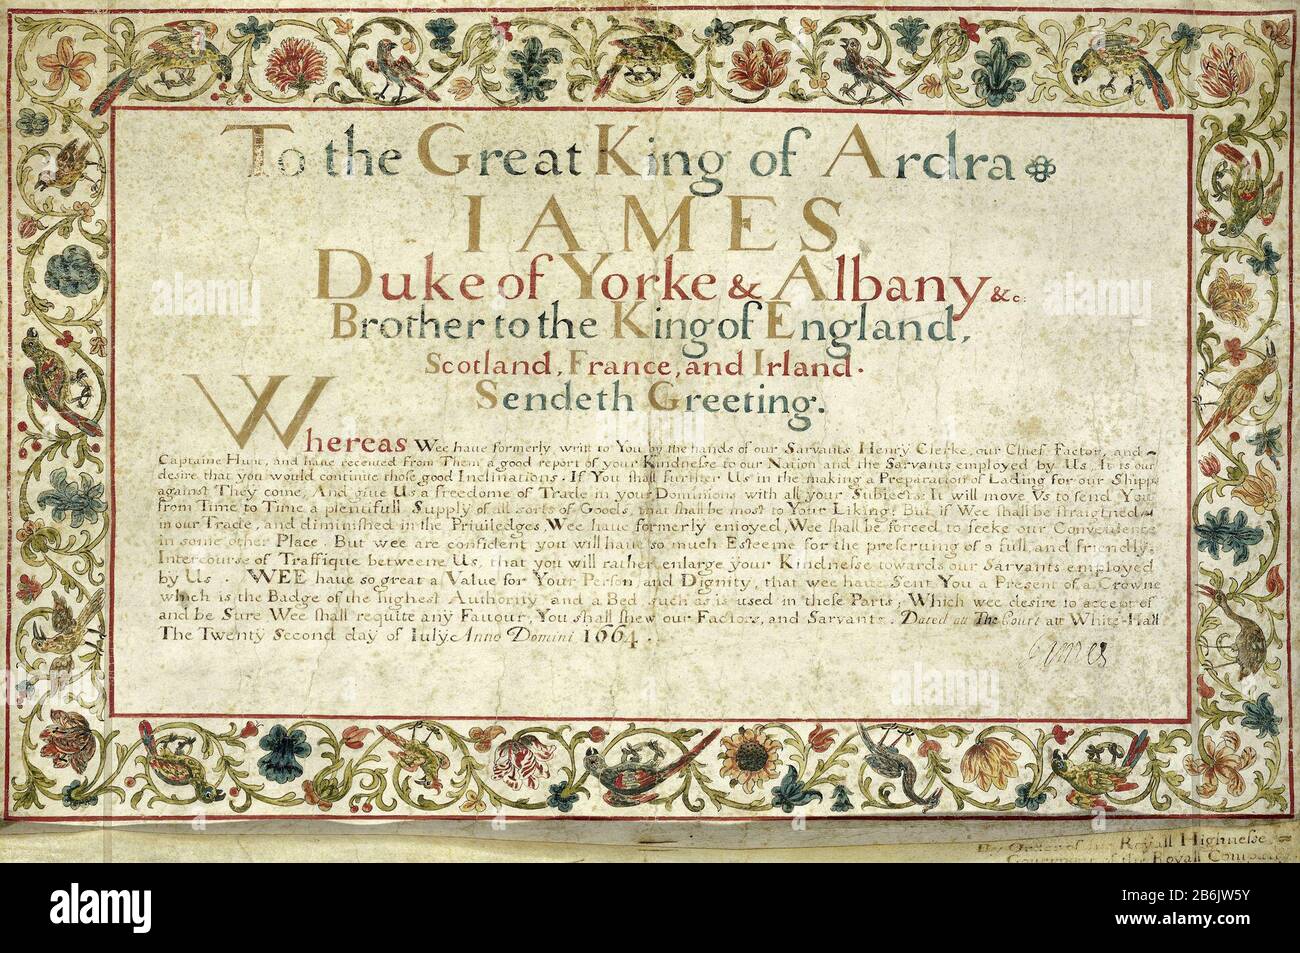 To the Great King of Ardra
IAMES
Duke of Yorke & Albany &c:
Brother to the King of England,
Scotland, France, and Irland.
Sendeth Greeting.
Whereas Wee haue formerly writt to You by the hands of our Sarvants Henry Clerke, our Chief Factor, and
Captaine Hunt, and haue received from Them a good report of your Kindnesse to our Nation and the Sarvants employed by Us, It is our
desire that you would continue those good Inclinations. If You shall further Us in the making a Preparation of Lading for our Shipps
against They come, And giue Us a freedome of Trade in your Dominions with all your Subjects: It will move Vs to send You
from Time to Time a plentifull Supply of all sorts of Goods, that shall be most to Your Liking; But if Wee shall be straightned
in our Trade, and diminished in the Priuiledges Wee haue formerly enioyed, Wee shall be forced to seeke our Convenience
in some other Place. But wee are confident you will haue so much Esteeme for the preseruing of a full and friendly
Intercourse of Traffique betweene Us, that you will rather enlarge your Kindnesse towards our Sarvants employed
by Us. WEE haue so great a Value for Your Person and Dignity, that wee haue Sent You a Present of a Crowne
which is the Badge of the highest Authority and a Bed such as is used in these Parts, Which wee desire to accept of
and be Sure Wee shall requite any Fauour, You shall shew our Factors, and Sarvants. Dated att The Court att White-Hall
The Twenty Second day of Iuly Anno Domini 1664.
James
By Order of his Royall Highnesse
Gouernour of the Royall Company
alamy
Image ID: 2B6JW5Y
www.alamy.com